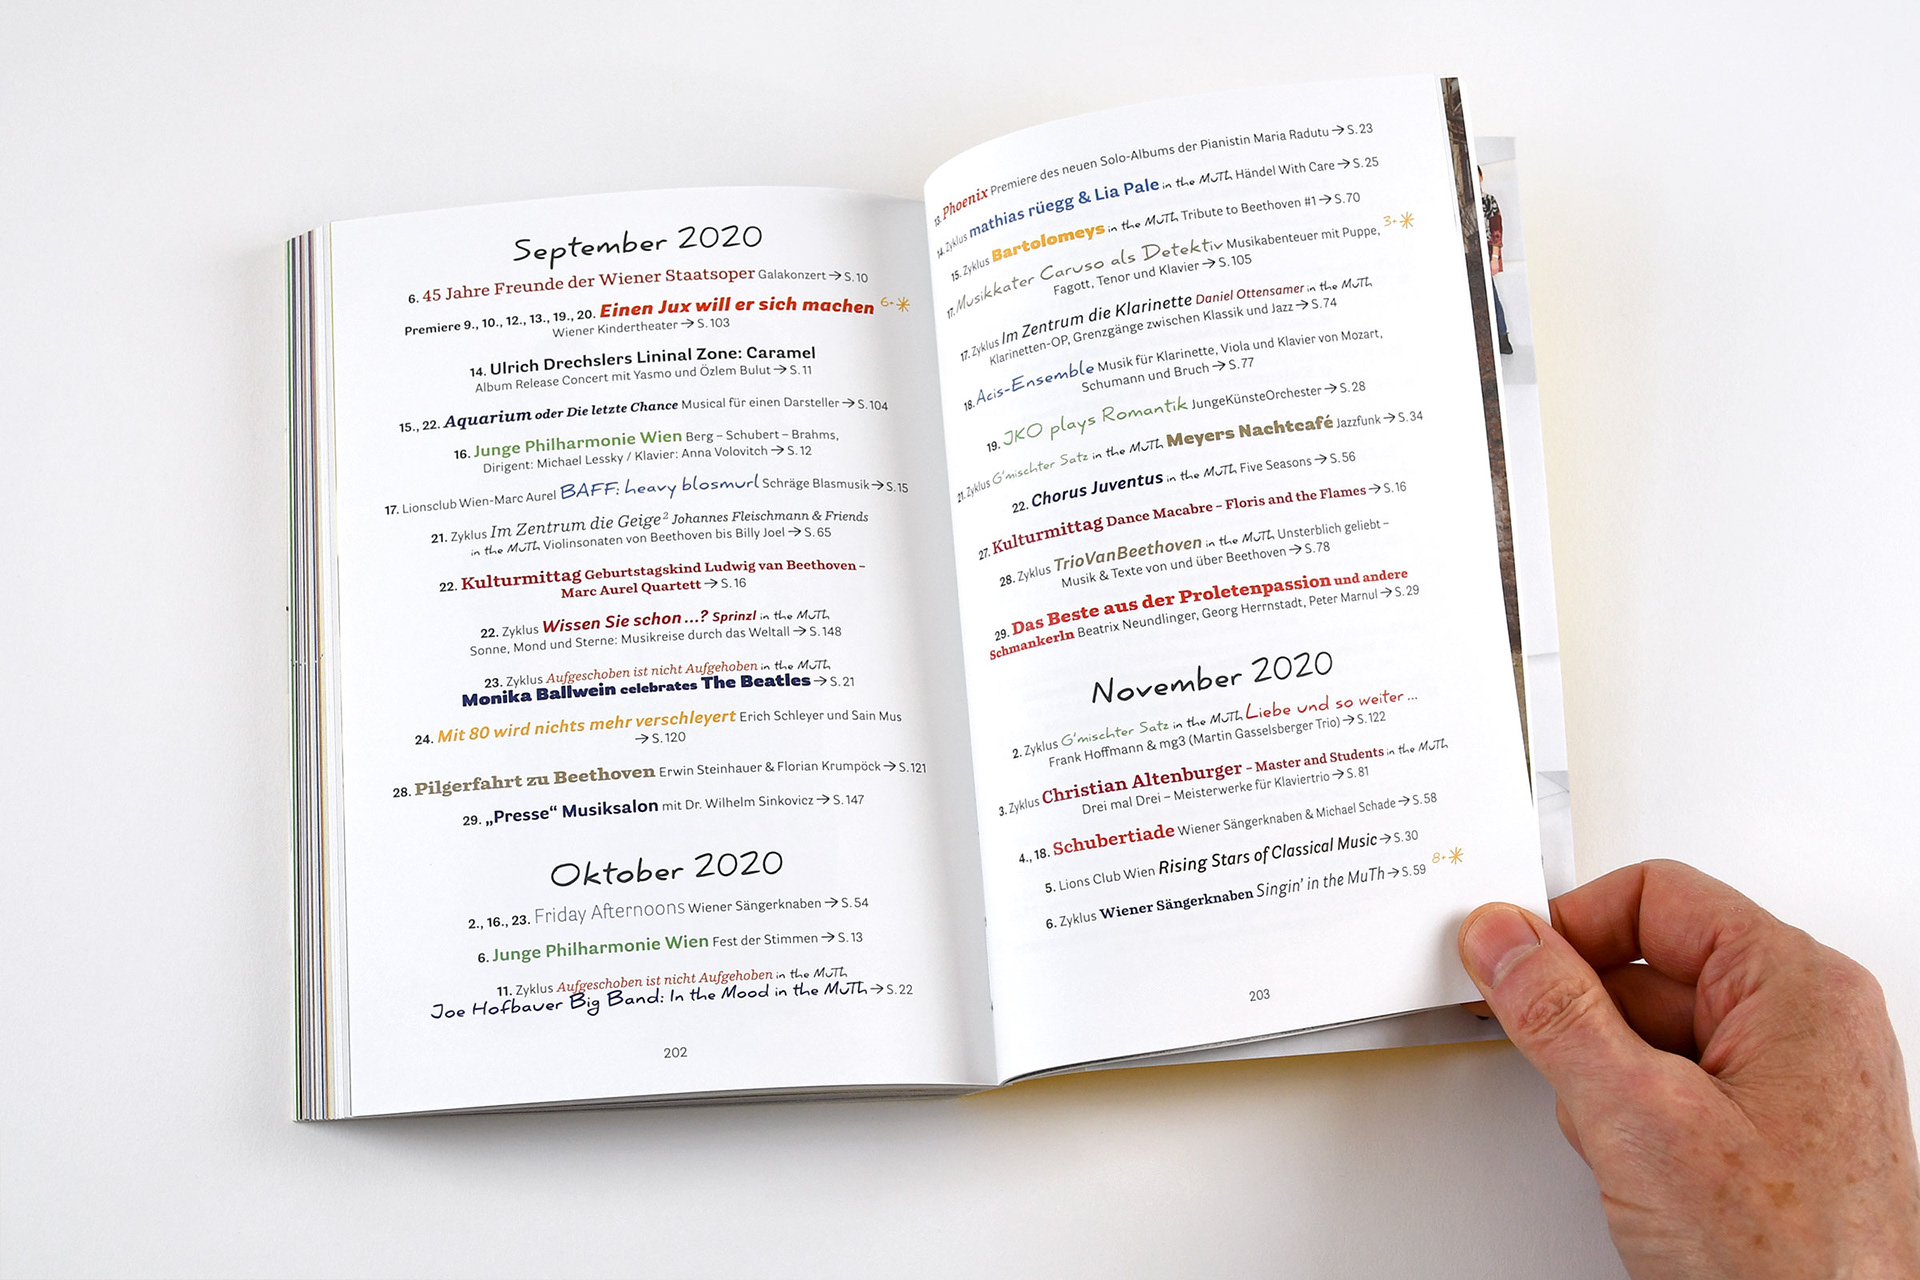 September 2020
6. 45 Jahre Freunde der Wiener Staatsoper Galakonzert → S. 10
Premiere 9., 10., 12., 13., 19., 20. Einen Jux will er sich machen 6+
Wiener Kindertheater → S. 103
14. Ulrich Drechslers Lininal Zone: Caramel
Album Release Concert mit Yasmo und Özlem Bulut → S. 11
15., 22. Aquarium oder Die letzte Chance Musical für einen Darsteller → S. 104
16. Junge Philharmonie Wien Berg – Schubert – Brahms,
Dirigent: Michael Lessky / Klavier: Anna Volovitch → S. 12
17. Lionsclub Wien-Marc Aurel BAFF: heavy blosmurl Schräge Blasmusik → S. 15
21. Zyklus Im Zentrum die Geige² Johannes Fleischmann & Friends
in the MuTh Violinsonaten von Beethoven bis Billy Joel → S. 65
22. Kulturmittag Geburtstagskind Ludwig van Beethoven –
Marc Aurel Quartett → S. 16
22. Zyklus Wissen Sie schon ...? Sprinzl in the MuTh
Sonne, Mond und Sterne: Musikreise durch das Weltall → S. 148
23. Zyklus Aufgeschoben ist nicht Aufgehoben in the MuTh
Monika Ballwein celebrates The Beatles → S. 21
24. Mit 80 wird nichts mehr verschleyert Erich Schleyer und Sain Mus
→ S. 120
28. Pilgerfahrt zu Beethoven Erwin Steinhauer & Florian Krumpöck → S. 121
29. „Presse“ Musiksalon mit Dr. Wilhelm Sinkovicz → S. 147
Oktober 2020
2., 16., 23. Friday Afternoons Wiener Sängerknaben → S. 54
6. Junge Philharmonie Wien Fest der Stimmen → S. 13
11. Zyklus Aufgeschoben ist nicht Aufgehoben in the MuTh
Joe Hofbauer Big Band: In the Mood in the MuTh → S. 22
202
13. Phoenix Premiere des neuen Solo-Albums der Pianistin Maria Radutu → S. 23
14. Zyklus mathias rüegg & Lia Pale in the MuTh Händel With Care → S. 25
15. Zyklus Bartolomeys in the MuTh Tribute to Beethoven #1 → S. 70
17. Musikkater Caruso als Detektiv Musikabenteuer mit Puppe, 3+
Fagott, Tenor und Klavier → S. 105
17. Zyklus Im Zentrum die Klarinette Daniel Ottensamer in the MuTh
Klarinetten-OP, Grenzgänge zwischen Klassik und Jazz → S. 74
18. Acis-Ensemble Musik für Klarinette, Viola und Klavier von Mozart,
Schumann und Bruch → S. 77
19. JKO plays Romantik JungeKünsteOrchester → S. 28
21. Zyklus G'mischter Satz in the MuTh Meyers Nachtcafé Jazzfunk → S. 34
22. Chorus Juventus in the MuTh Five Seasons → S. 56
27. Kulturmittag Dance Macabre – Floris and the Flames → S. 16
28. Zyklus TrioVanBeethoven in the MuTh Unsterblich geliebt –
Musik & Texte von und über Beethoven → S. 78
29. Das Beste aus der Proletenpassion und andere
Schmankerln Beatrix Neundlinger, Georg Herrnstadt, Peter Marnul → S. 29
November 2020
2. Zyklus G'mischter Satz in the MuTh Liebe und so weiter ...
Frank Hoffmann & mg3 (Martin Gasselsberger Trio) → S. 122
3. Zyklus Christian Altenburger – Master and Students in the MuTh
Drei mal Drei – Meisterwerke für Klaviertrio → S. 81
4., 18. Schubertiade Wiener Sängerknaben & Michael Schade → S. 58
5. Lions Club Wien Rising Stars of Classical Music → S. 30
6. Zyklus Wiener Sängerknaben Singin' in the MuTh → S. 59 8+
203